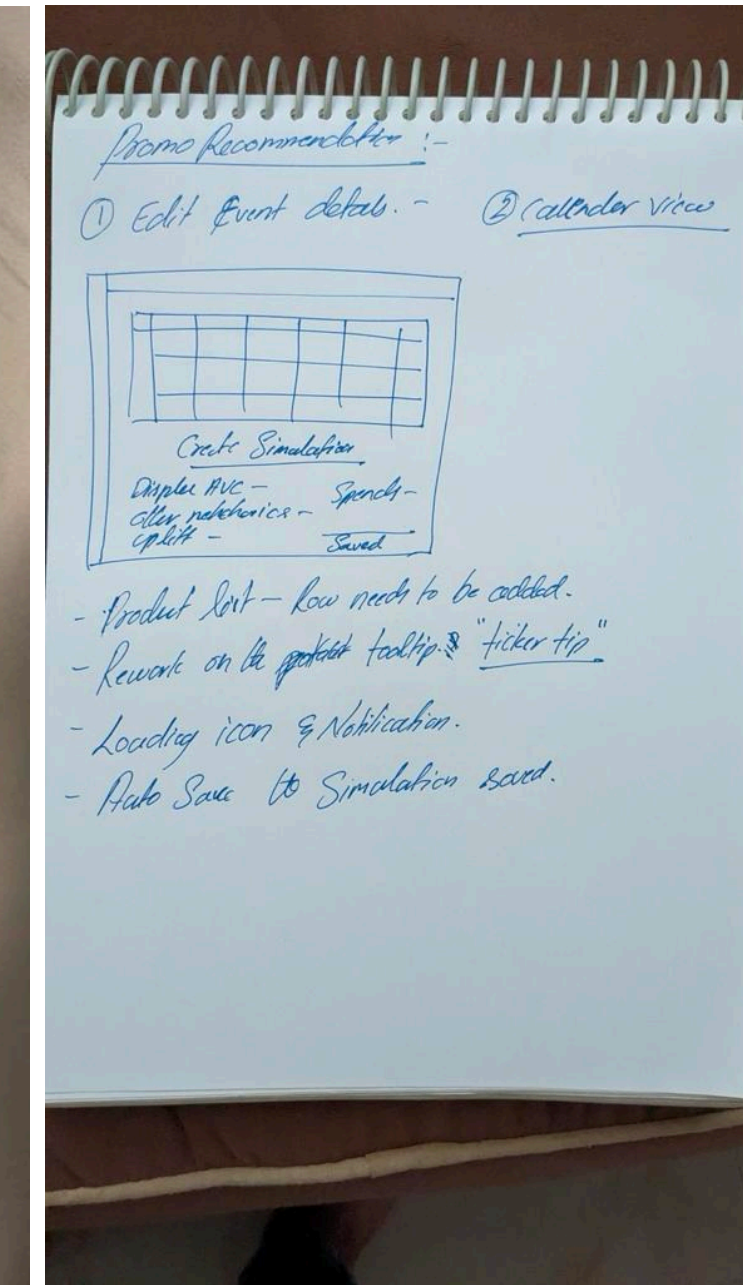 Promo Recommendation :-
① Edit Event details. -
② Calender view
Create Simulation
Display AVC -
Spends -
offer mechanics -
uplift -
Saved
- Product list - Row needs to be added.
- Rework on the tooltip. "ticker tip"
- Loading icon & Notification.
- Auto Save to Simulation saved.